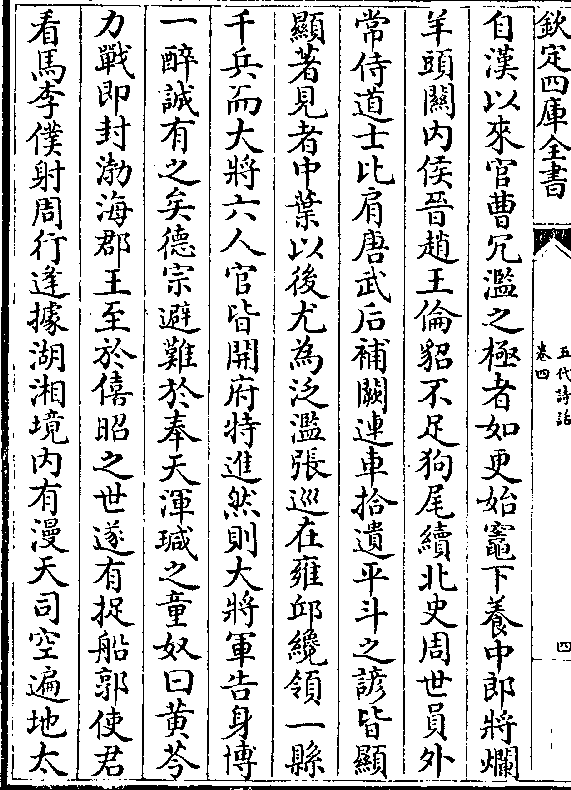 欽定四庫全書
五代詩話
卷四
四
自漢以來官曹冗濫之極者如更始竈下養中郎將爛
羊頭關内侯晉趙王倫貂不足狗尾續北史周世員外
常侍道士比肩唐武后補闕連車拾遺平斗之諺皆顯
顯著見者中葉以後尤為泛濫張巡在雍邱纔領一縣
千兵而大將六人官皆開府特進然則大將軍告身博
一醉誠有之矣德宗避難於奉天渾瑊之童奴曰黄芩
力戰即封渤海郡王至於僖昭之世遂有捉船郭使君
看馬李僕射周行逢據湖湘境内有漫天司空遍地太